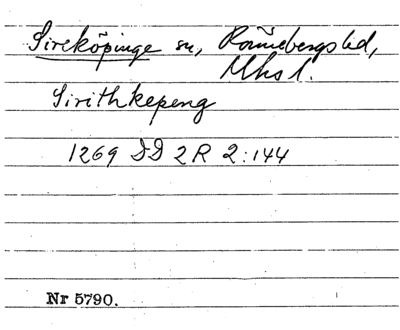 Sireköpinge sn, Rönnebergs hd,
Mhs l.
Sirithkepeng
1269 DD 2R 2:144
Nr 5790.